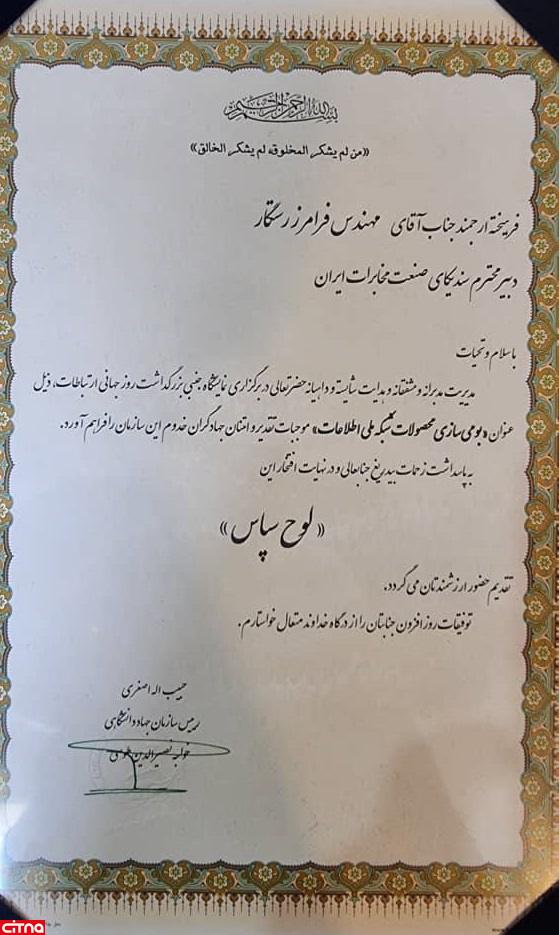 بسم الله الرحمن الرحیم
«من لم یشکر المخلوقه لم یشکر الخالق»
فرهیخته ارجمند جناب آقای مهندس فرامرز رستگار
دبیر محترم سندیکای صنعت مخابرات ایران
با سلام و تحیات
مدیریت مدبرانه و مشفقانه و هدایت شایسته و داهیانه حضرتعالی در برگزاری نمایشگاه جنبی بزرگداشت روز جهانی ارتباطات، ذیل
عنوان «بومی سازی محصولات شبکه ملی اطلاعات» موجبات تقدیر و امتنان جهادگران خدوم این سازمان را فراهم آورد.
به پاسداشت زحمات بیدریغ جنابعالی و در نهایت افتخار این
«لوح سپاس»
تقدیم حضور ارزشمندتان می گردد.
توفیقات روز افزون جنابتان را از درگاه خداوند متعال خواستارم.
حبیب اله اصغری
رییس سازمان جهاد دانشگاهی
خواجه نصیرالدین طوسی
citna